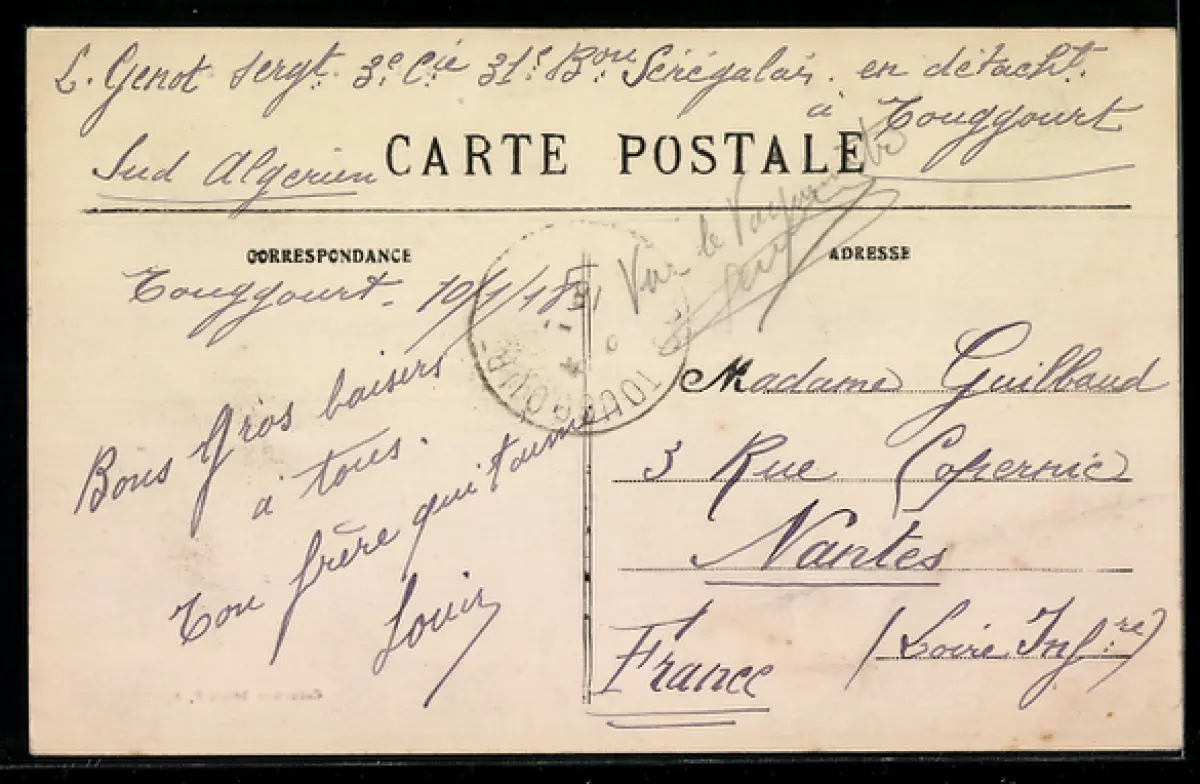 L. Genot Sergt. 3e Cie 31e Bon Sénégalais. en détacht.
à Touggourt
Sud Algerien
CARTE POSTALE
CORRESPONDANCE
ADRESSE
Touggourt. 10/1/18
Bons Gros baisers
à tous.
Ton frère qui t'aime
Louis
Voir le
TOUGGOURT
Madame Guilbaud
3 Rue Copernic
Nantes
(Loire Infre)
France